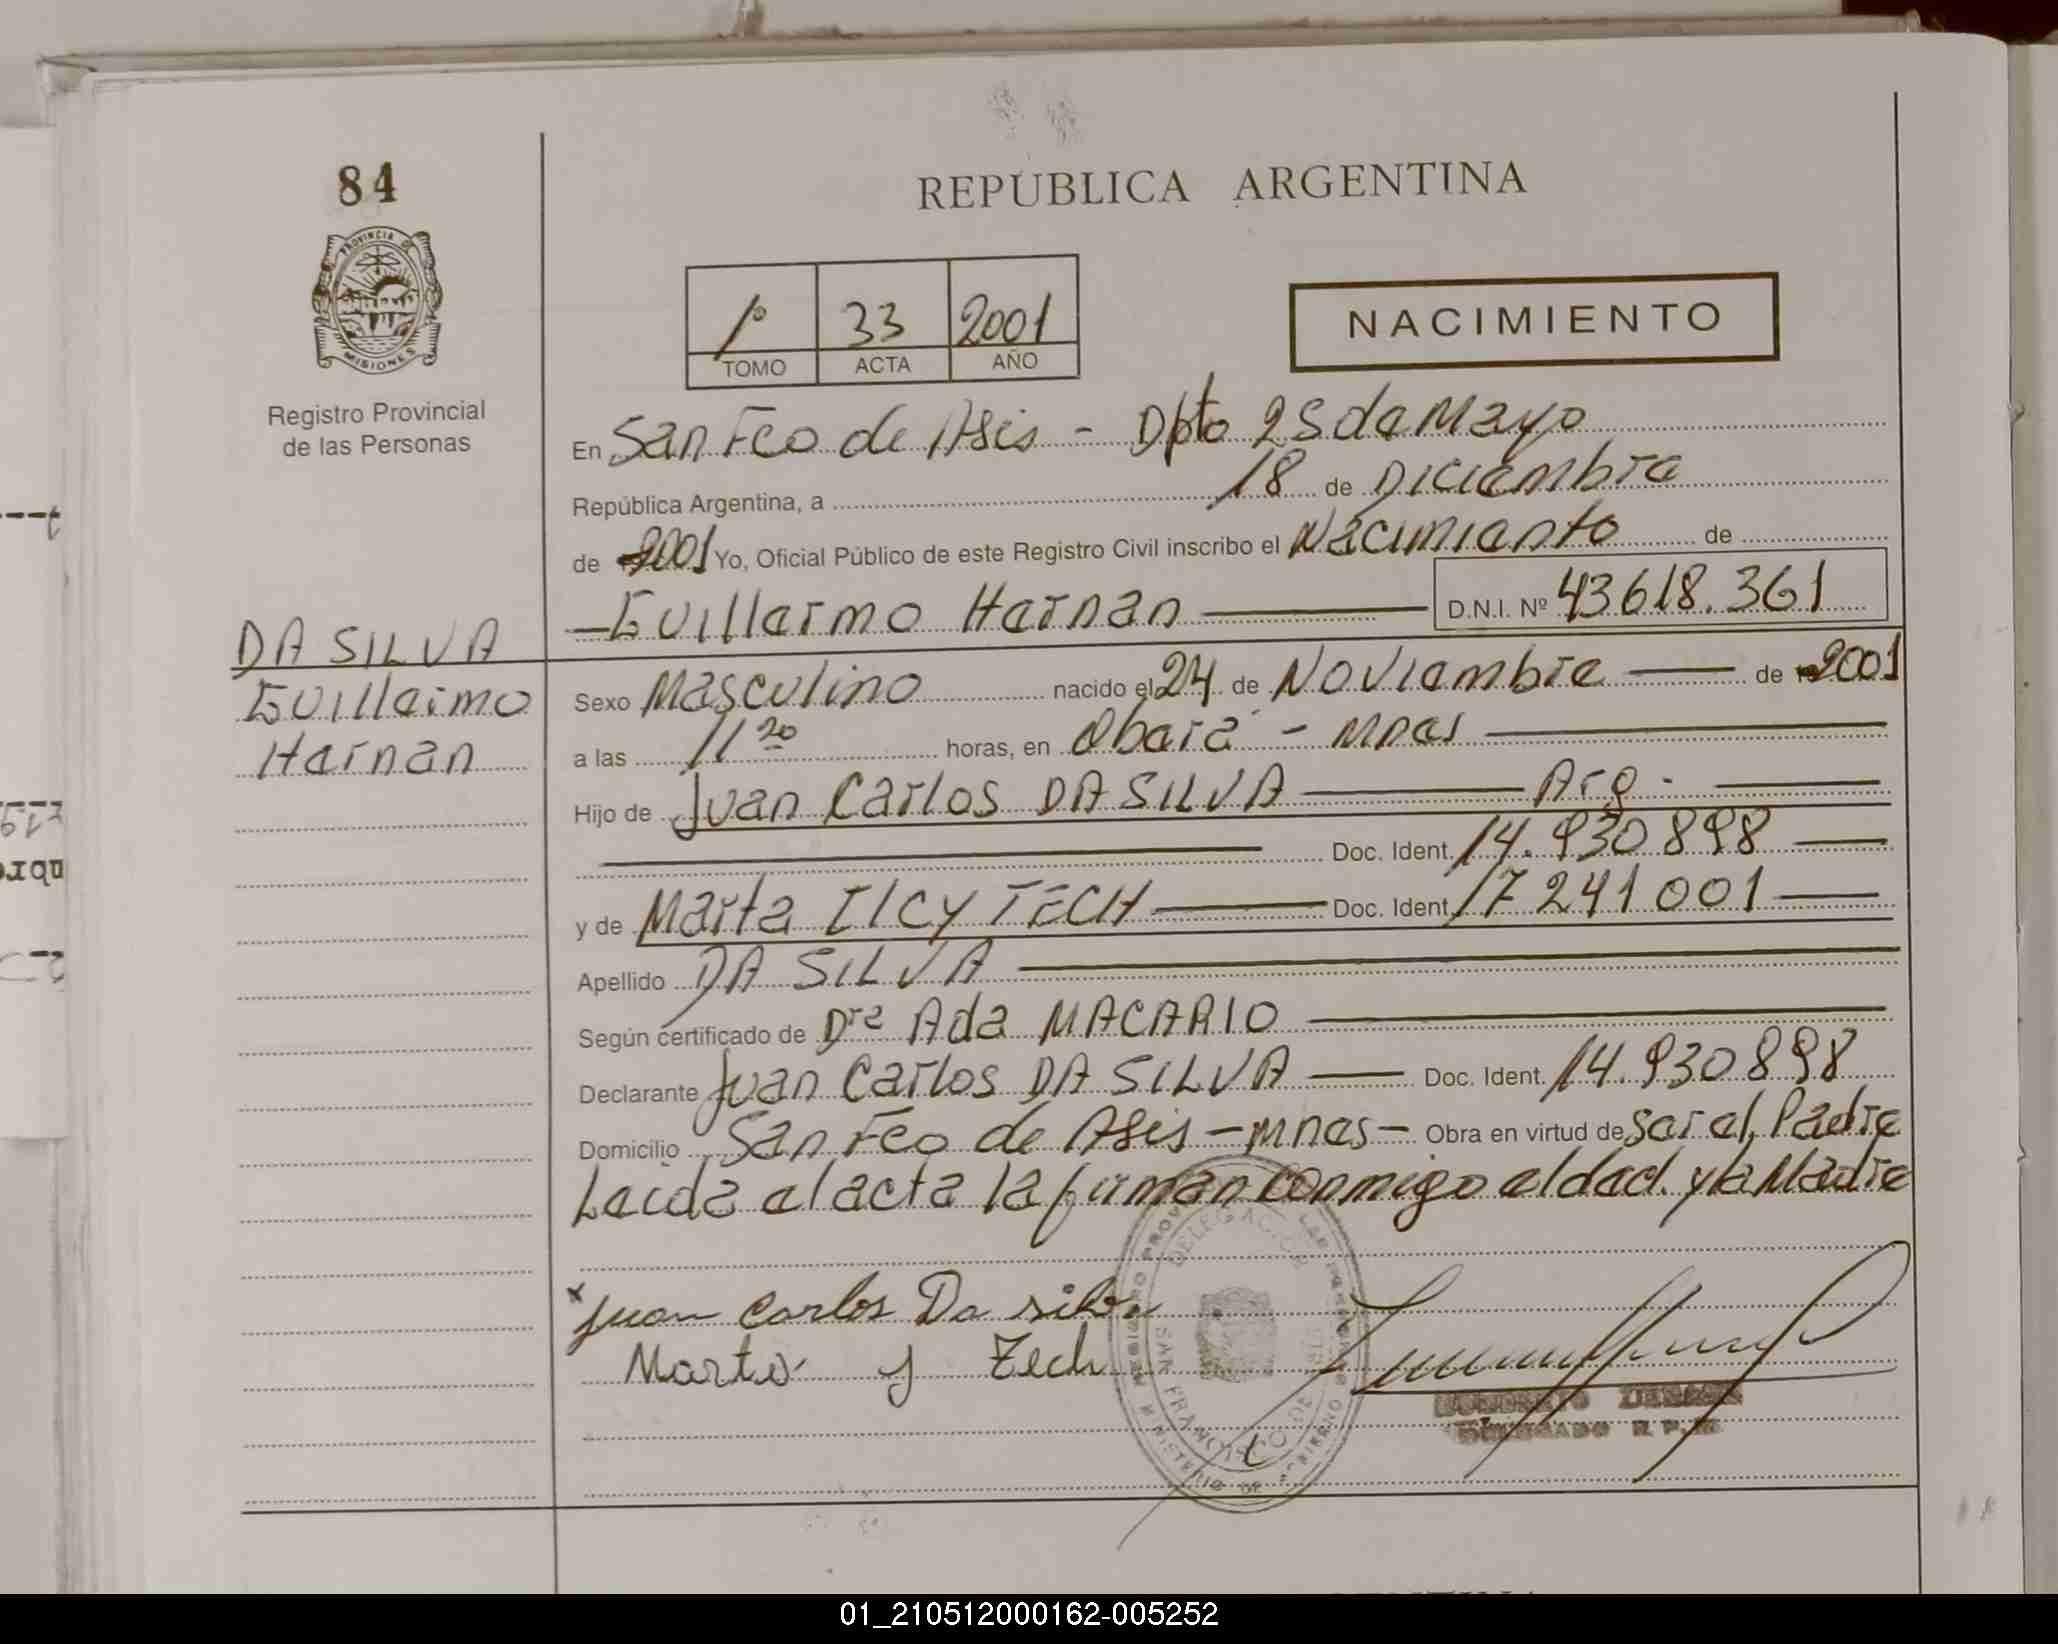 84
REPÚBLICA ARGENTINA
PROVINCIA DE
MISIONES
Registro Provincial
de las Personas
1º 33 2001
TOMO ACTA AÑO
NACIMIENTO
En San Fco de Asis - Dpto 25 de Mayo
República Argentina, a 18 de Diciembre
de 2001 Yo, Oficial Público de este Registro Civil inscribo el Nacimiento de
Guillermo Hernan D.N.I. Nº 43618.361
DA SILVA
Guillermo
Hernan
Sexo Masculino nacido el 24 de Noviembre de 2001
a las 11 20 horas, en Obera - Mnes
Hijo de Juan Carlos DA SILVA Arg.
Doc. Ident. 14.930898
y de Marta Ilcy TECH Doc. Ident. 17241001
Apellido DA SILVA
Según certificado de Dra Ada MACARIO
Declarante Juan Carlos DA SILVA Doc. Ident. 14.930898
Domicilio San Fco de Asis - Mnes - Obra en virtud de ser el Padre
Leida el acta la firman conmigo el decl. y la Madre
Juan Carlos Da silva
Marta y Tech
DELEGADO R.P.
SAN FRANCISCO DE
MINISTERIO DE GOBIERNO
01_210512000162-005252